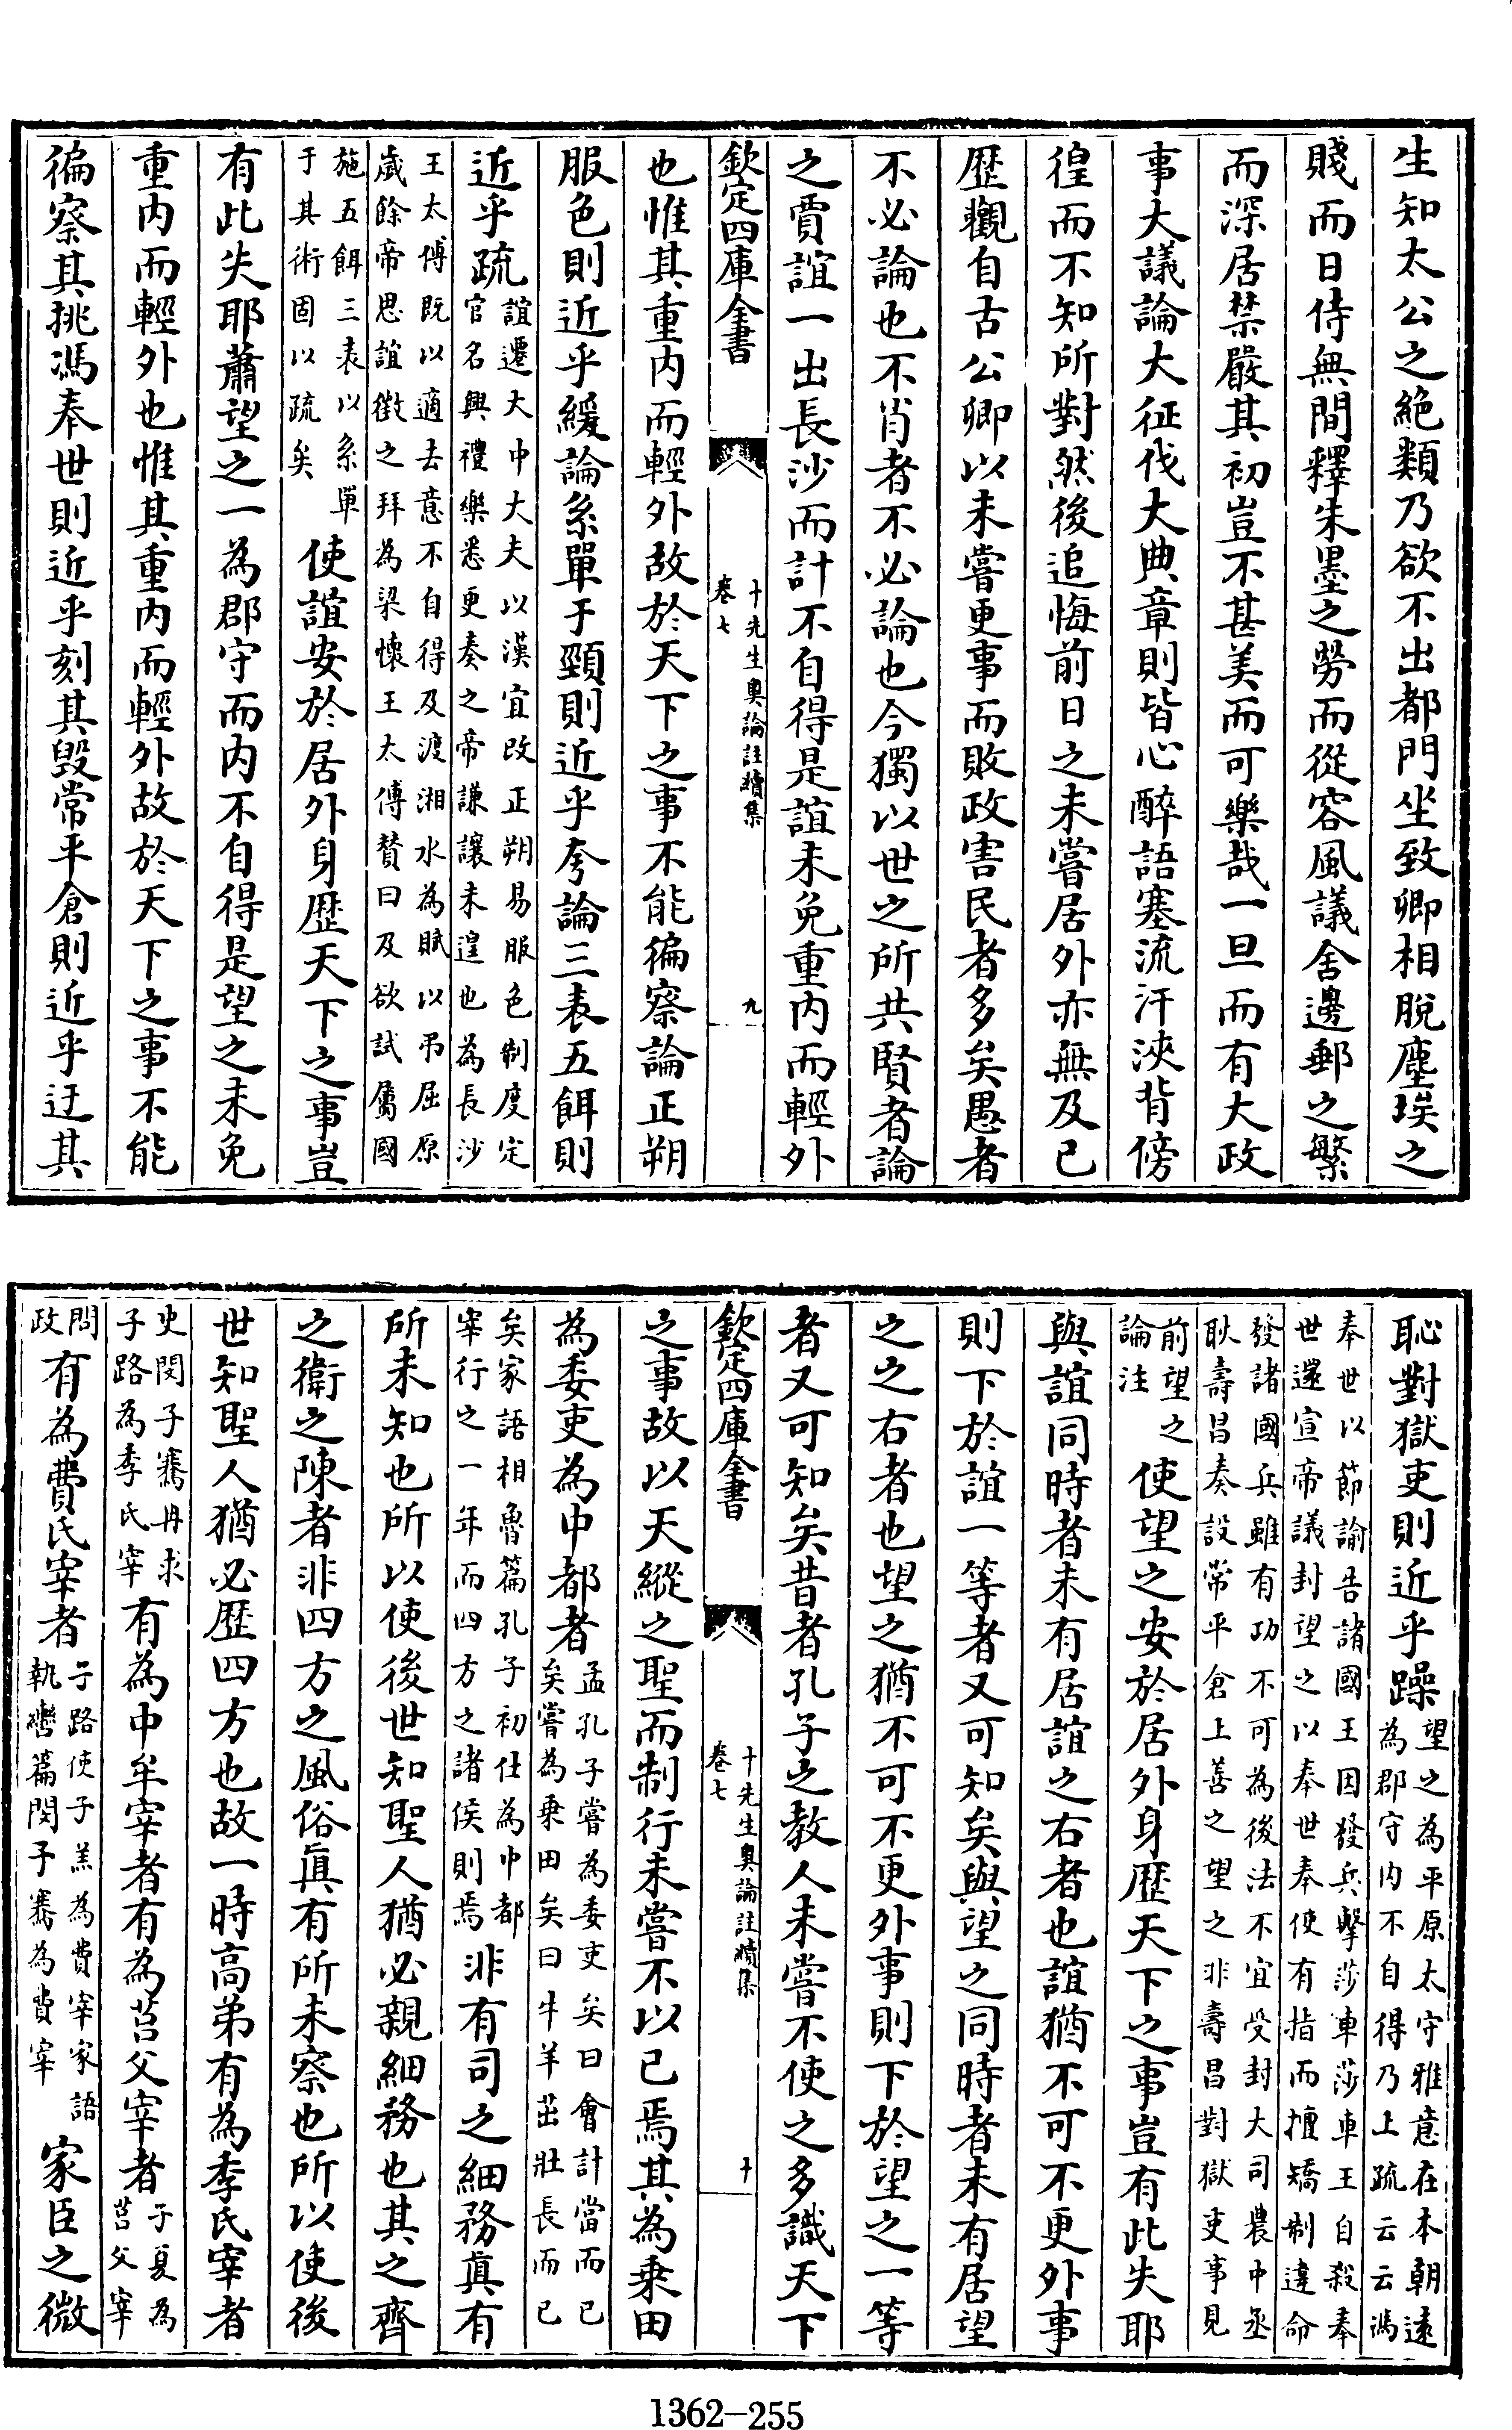 生知太公之絶類乃欲不出都門坐致卿相脫塵埃之
賤而日侍無間釋朱墨之勞而從容風議舍邊郵之繁
而深居禁嚴其初豈不甚美而可樂哉一旦而有大政
事大議論大征伐大典章則皆心醉語塞流汗浹背傍
徨而不知所對然後追悔前日之未嘗居外亦無及已
歴觀自古公卿以未嘗更事而敗政害民者多矣愚者
不必論也不肖者不必論也今獨以世之所共賢者論
之賈誼一出長沙而計不自得是誼未免重内而輕外
欽定四庫全書
十先生奥論註續集
卷七
九
也惟其重内而輕外故於天下之事不能徧察論正朔
服色則近乎緩論系單于頸則近乎夸論三表五餌則
近乎疏
誼遷大中大夫以漢宜改正朔易服色制度定
官名興禮樂悉更奏之帝謙讓未遑也為長沙
王太傅既以適去意不自得及渡湘水為賦以弔屈原
歲餘帝思誼徵之拜為梁懷王太傅賛曰及欲試屬國
施五餌三表以系單
于其術固以疏矣
使誼安於居外身歴天下之事豈
有此失耶蕭望之一為郡守而内不自得是望之未免
重内而輕外也惟其重内而輕外故於天下之事不能
徧察其挑馮奉世則近乎刻其毁常平倉則近乎迂其
恥對獄吏則近乎躁
望之為平原太守雅意在本朝遠
為郡守内不自得乃上疏云云馮
奉世以節諭告諸國王因發兵擊莎車莎車王自殺奉
世還宣帝議封望之以奉世奉使有指而擅矯制違命
發諸國兵雖有功不可為後法不宜受封大司農中丞
耿壽昌奏設常平倉上善之望之非壽昌對獄吏事見
前望之
論注
使望之安於居外身歴天下之事豈有此失耶
與誼同時者未有居誼之右者也誼猶不可不更外事
則下於誼一等者又可知矣與望之同時者未有居望
之之右者也望之猶不可不更外事則下於望之一等
者又可知矣昔者孔子之教人未嘗不使之多識天下
欽定四庫全書
十先生奥論註續集
卷七
十
之事故以天縱之聖而制行未嘗不以已焉其為乗田
為委吏為中都者
孟孔子嘗為委吏矣曰會計當而已
矣嘗為乗田矣曰牛羊茁壯長而已
矣家語相魯篇孔子初仕為中都
宰行之一年而四方之諸侯則焉
非有司之細務真有
所未知也所以使後世知聖人猶必親細務也其之齊
之衛之陳者非四方之風俗真有所未察也所以使後
世知聖人猶必歴四方也故一時高弟有為季氏宰者
史閔子騫冉求
子路為季氏宰
有為中牟宰者有為莒父宰者
子夏為
莒父宰
問
政
有為費氏宰者
子路使子羔為費宰家語
執轡篇閔子騫為費宰
家臣之微
1362-255